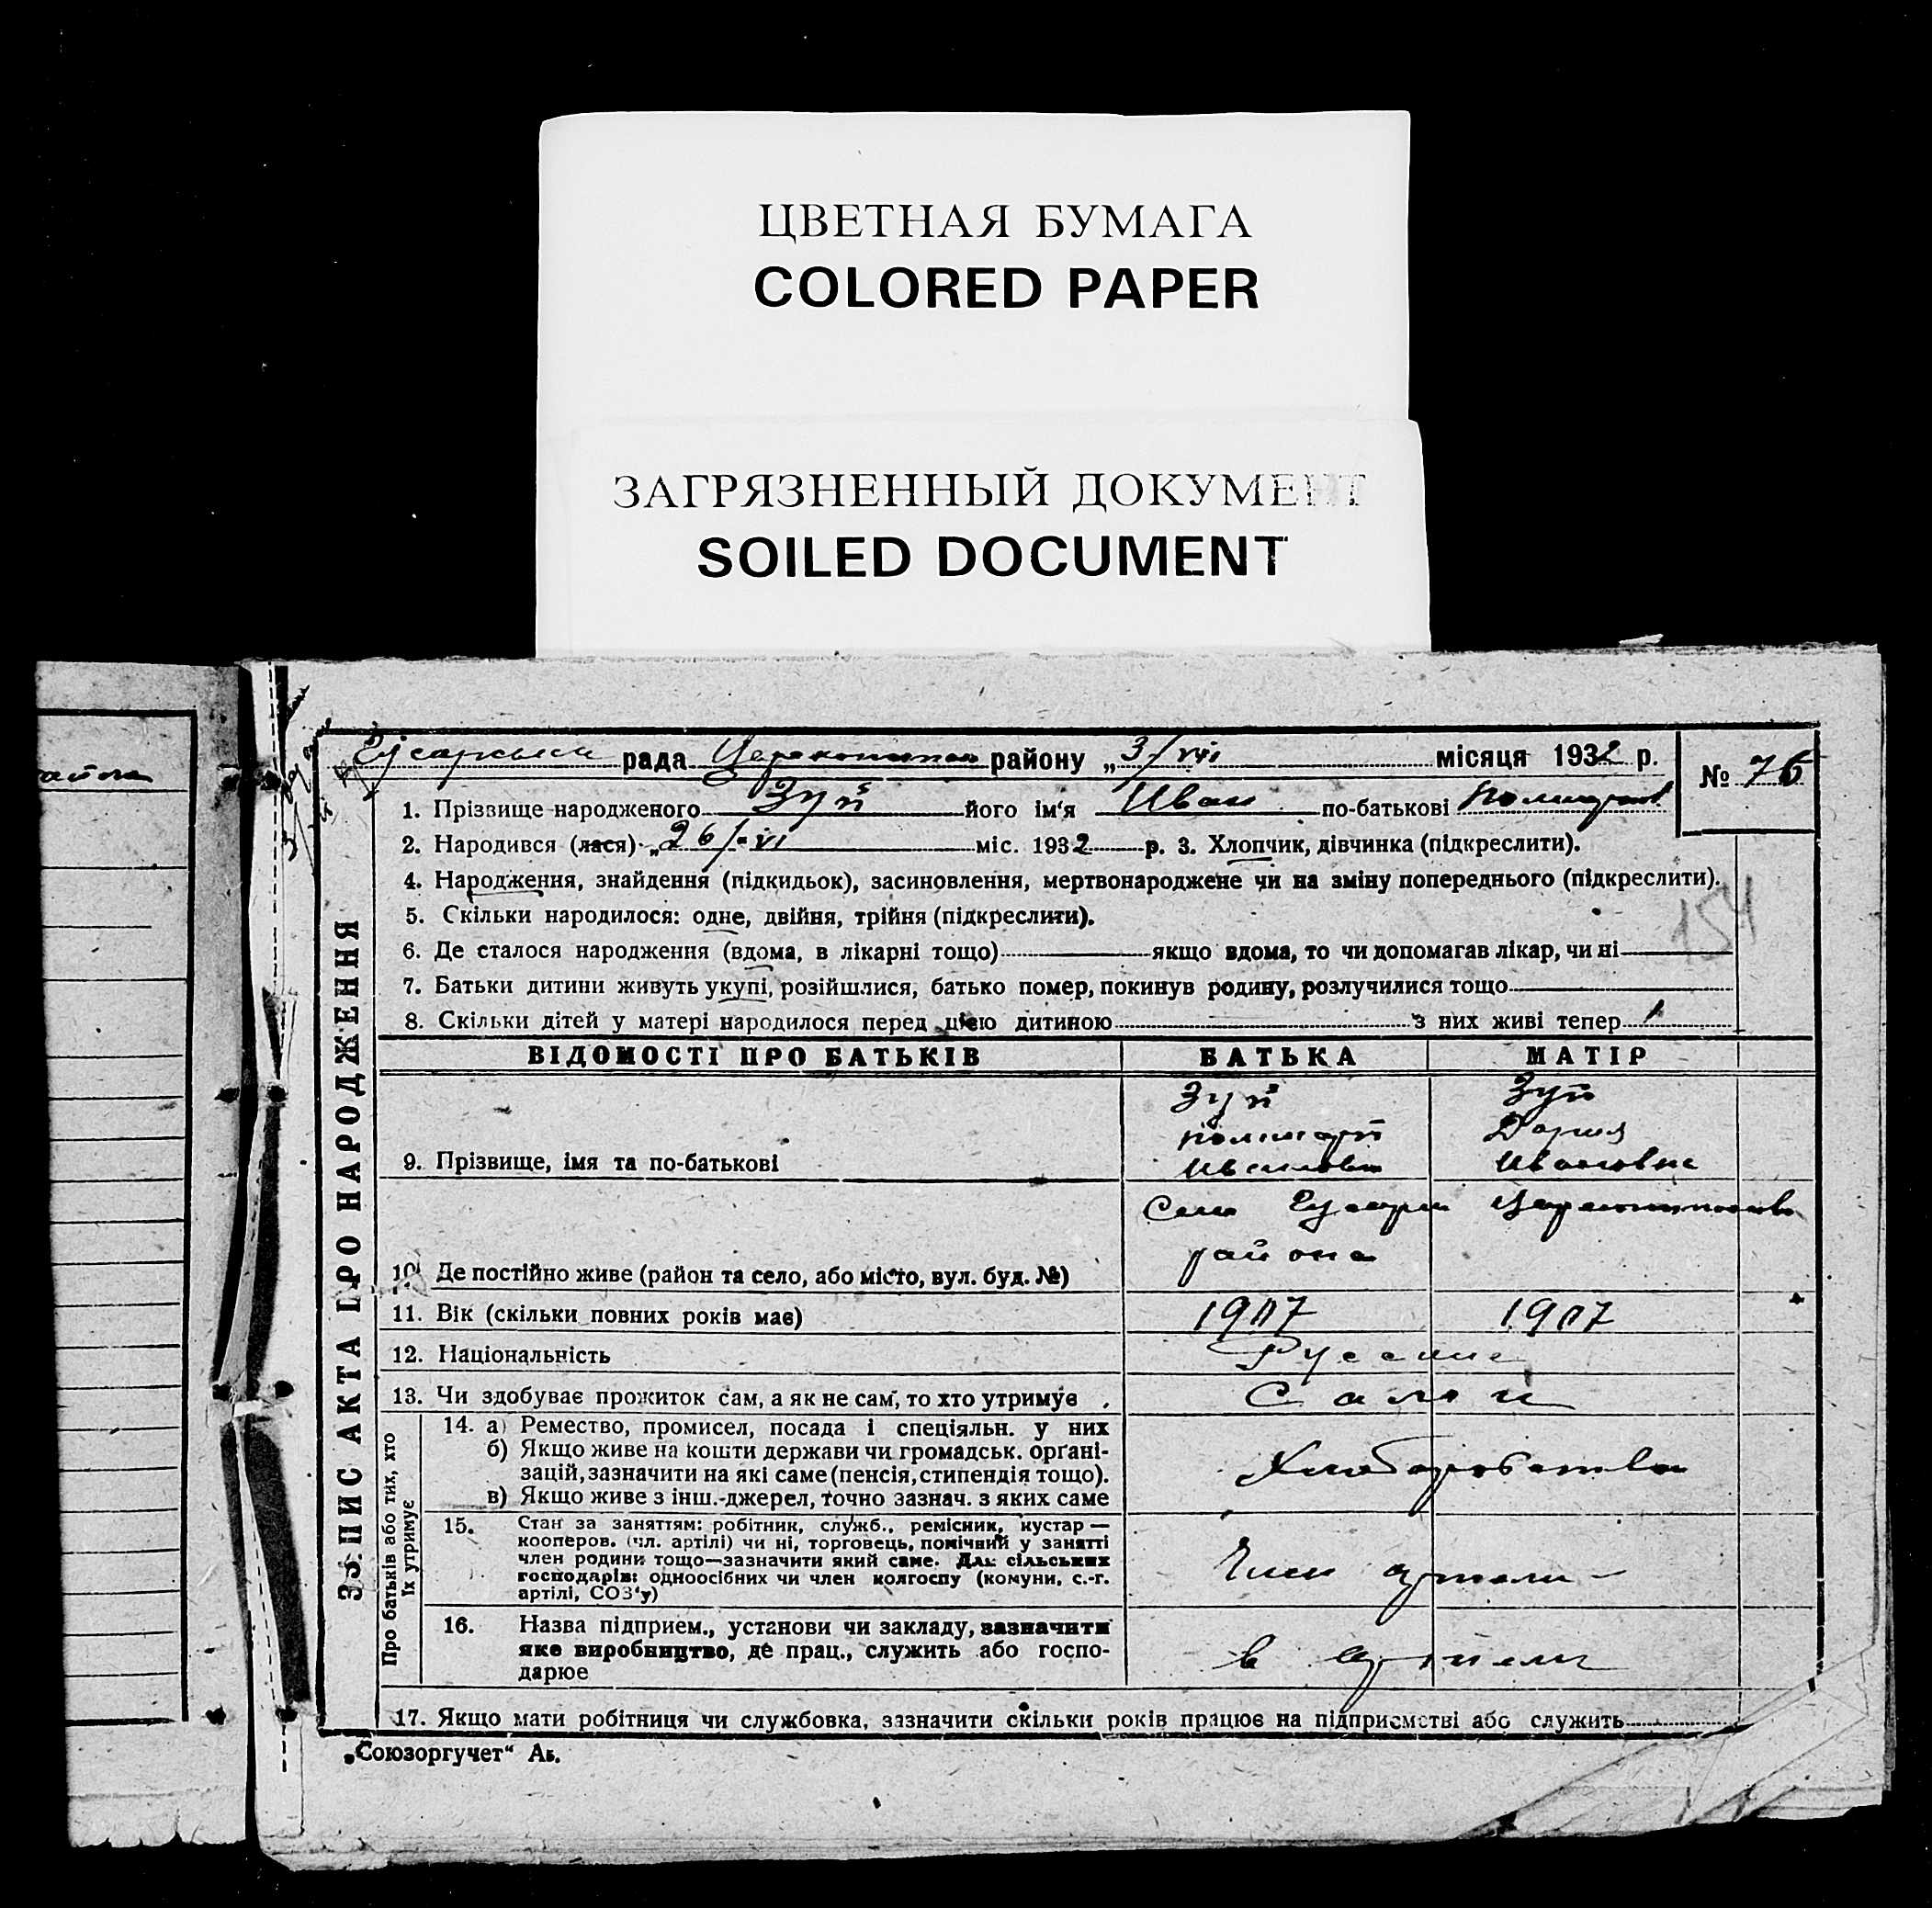 ЦВЕТНАЯ БУМАГА
COLORED PAPER
ЗАГРЯЗНЕННЫЙ ДОКУМЕНТ
SOILED DOCUMENT
рада району „3/VIII місяця 1932 р.
№ 76
1. Прізвище народженого Зуй його ім‘я Иван по-батькові
2. Народився (лася) „26/VI міс. 1932 р. 3. Хлопчик, дівчинка (підкреслити).
4. Народження, знайдення (підкидьок), засиновлення, мертвонароджене чи на зміну попереднього (підкреслити).
5. Скільки народилося: одне, двійня, трійня (підкреслити).
6. Де сталося народження (вдома, в лікарні тощо) якщо вдома, то чи допомагав лікар, чи ні
7. Батьки дитини живуть укупі, розійшлися, батько помер, покинув родину, розлучилися тощо
8. Скільки дітей у матері народилося перед цією дитиною з них живі тепер 1
ЗАПИС АКТА ПРО НАРОДЖЕННЯ
ВІДОМОСТІ ПРО БАТЬКІВ БАТЬКА МАТІР
Зуй Зуй
Дария
9. Прізвище, імя та по-батькові Ивановна
Село
района
10. Де постійно живе (район та село, або місто, вул. буд. №)
11. Вік (скільки повних років має) 1907 1907
12. Національність Русские
13. Чи здобуває прожиток сам, а як не сам, то хто утримує Сами
Про батьків або тих, хто
їх утримує
14. а) Ремество, промисел, посада і спеціяльн. у них
б) Якщо живе на кошти держави чи громадськ. орґані-
зацій, зазначити на які саме (пенсія, стипендія тощо).
в) Якщо живе з інш. джерел, точно зазнач. з яких саме
15. Стан за заняттям: робітник, служб., ремісник, кустар —
кооперов. (чл. артілі) чи ні, торговець, помічний у занятті
член родини тощо—зазначити який саме. Для сільських
господарів: одноосібних чи член колгоспу (комуни, с.-г.
артілі, СОЗ‘у)
Член артели
16. Назва підприєм., установи чи закладу, зазначити
яке виробництво, де прац., служить або госпо-
дарює
в артели
17. Якщо мати робітниця чи службовка, зазначити скільки років працює на підприємстві або служить
„Союзоргучет“ Ак.